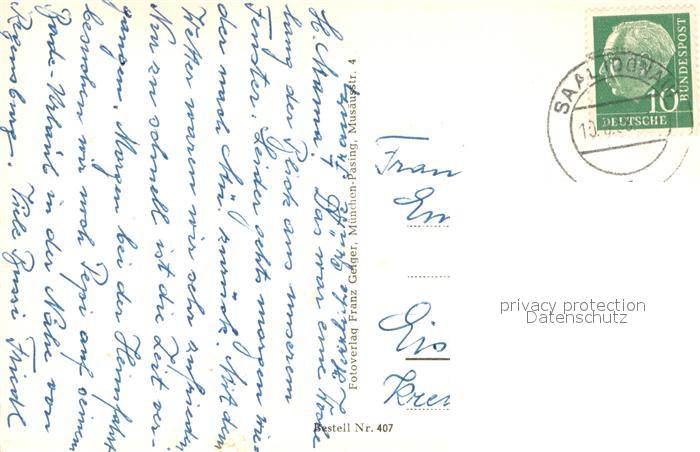 H. Mama! Das war eine Wohl
hung der Blick aus unserem
Fenster. Leider gehts morgen wie-
der nach Mü. zurück. Mit dem
Wetter waren wir sehr zufrieden
Nur zu schnell ist die Zeit ver-
gangen. Morgen bei der Heimfahrt
besuchen wir noch Pepi auf seinem
Bade-Urlaub in der Nähe von
Regensburg. Viele Bussi Friedl
Fotoverlag Franz Geiger, München-Pasing, Musäusstr. 4
Bestell Nr. 407
Frau
Em
Eis
Krem
SAAL (DONAU)
10
DEUTSCHE
BUNDESPOST
privacy protection
Datenschutz